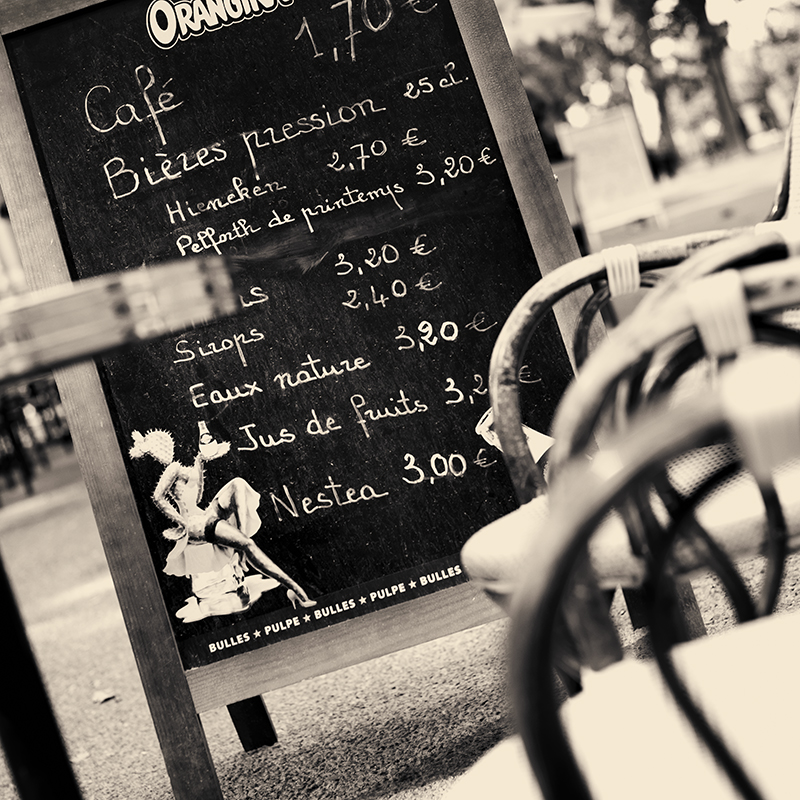 1,70 €
Café
Bières pression 25 cl.
Hieneken 2,70 €
Pelforth de printemps 3,20 €
3,20 €
2,40 €
Sirops
Eaux nature 3,20 €
Jus de fruits 3,2 €
Nestea 3,00 €
BULLES ★ PULPE ★ BULLES ★ PULPE ★ BULLES